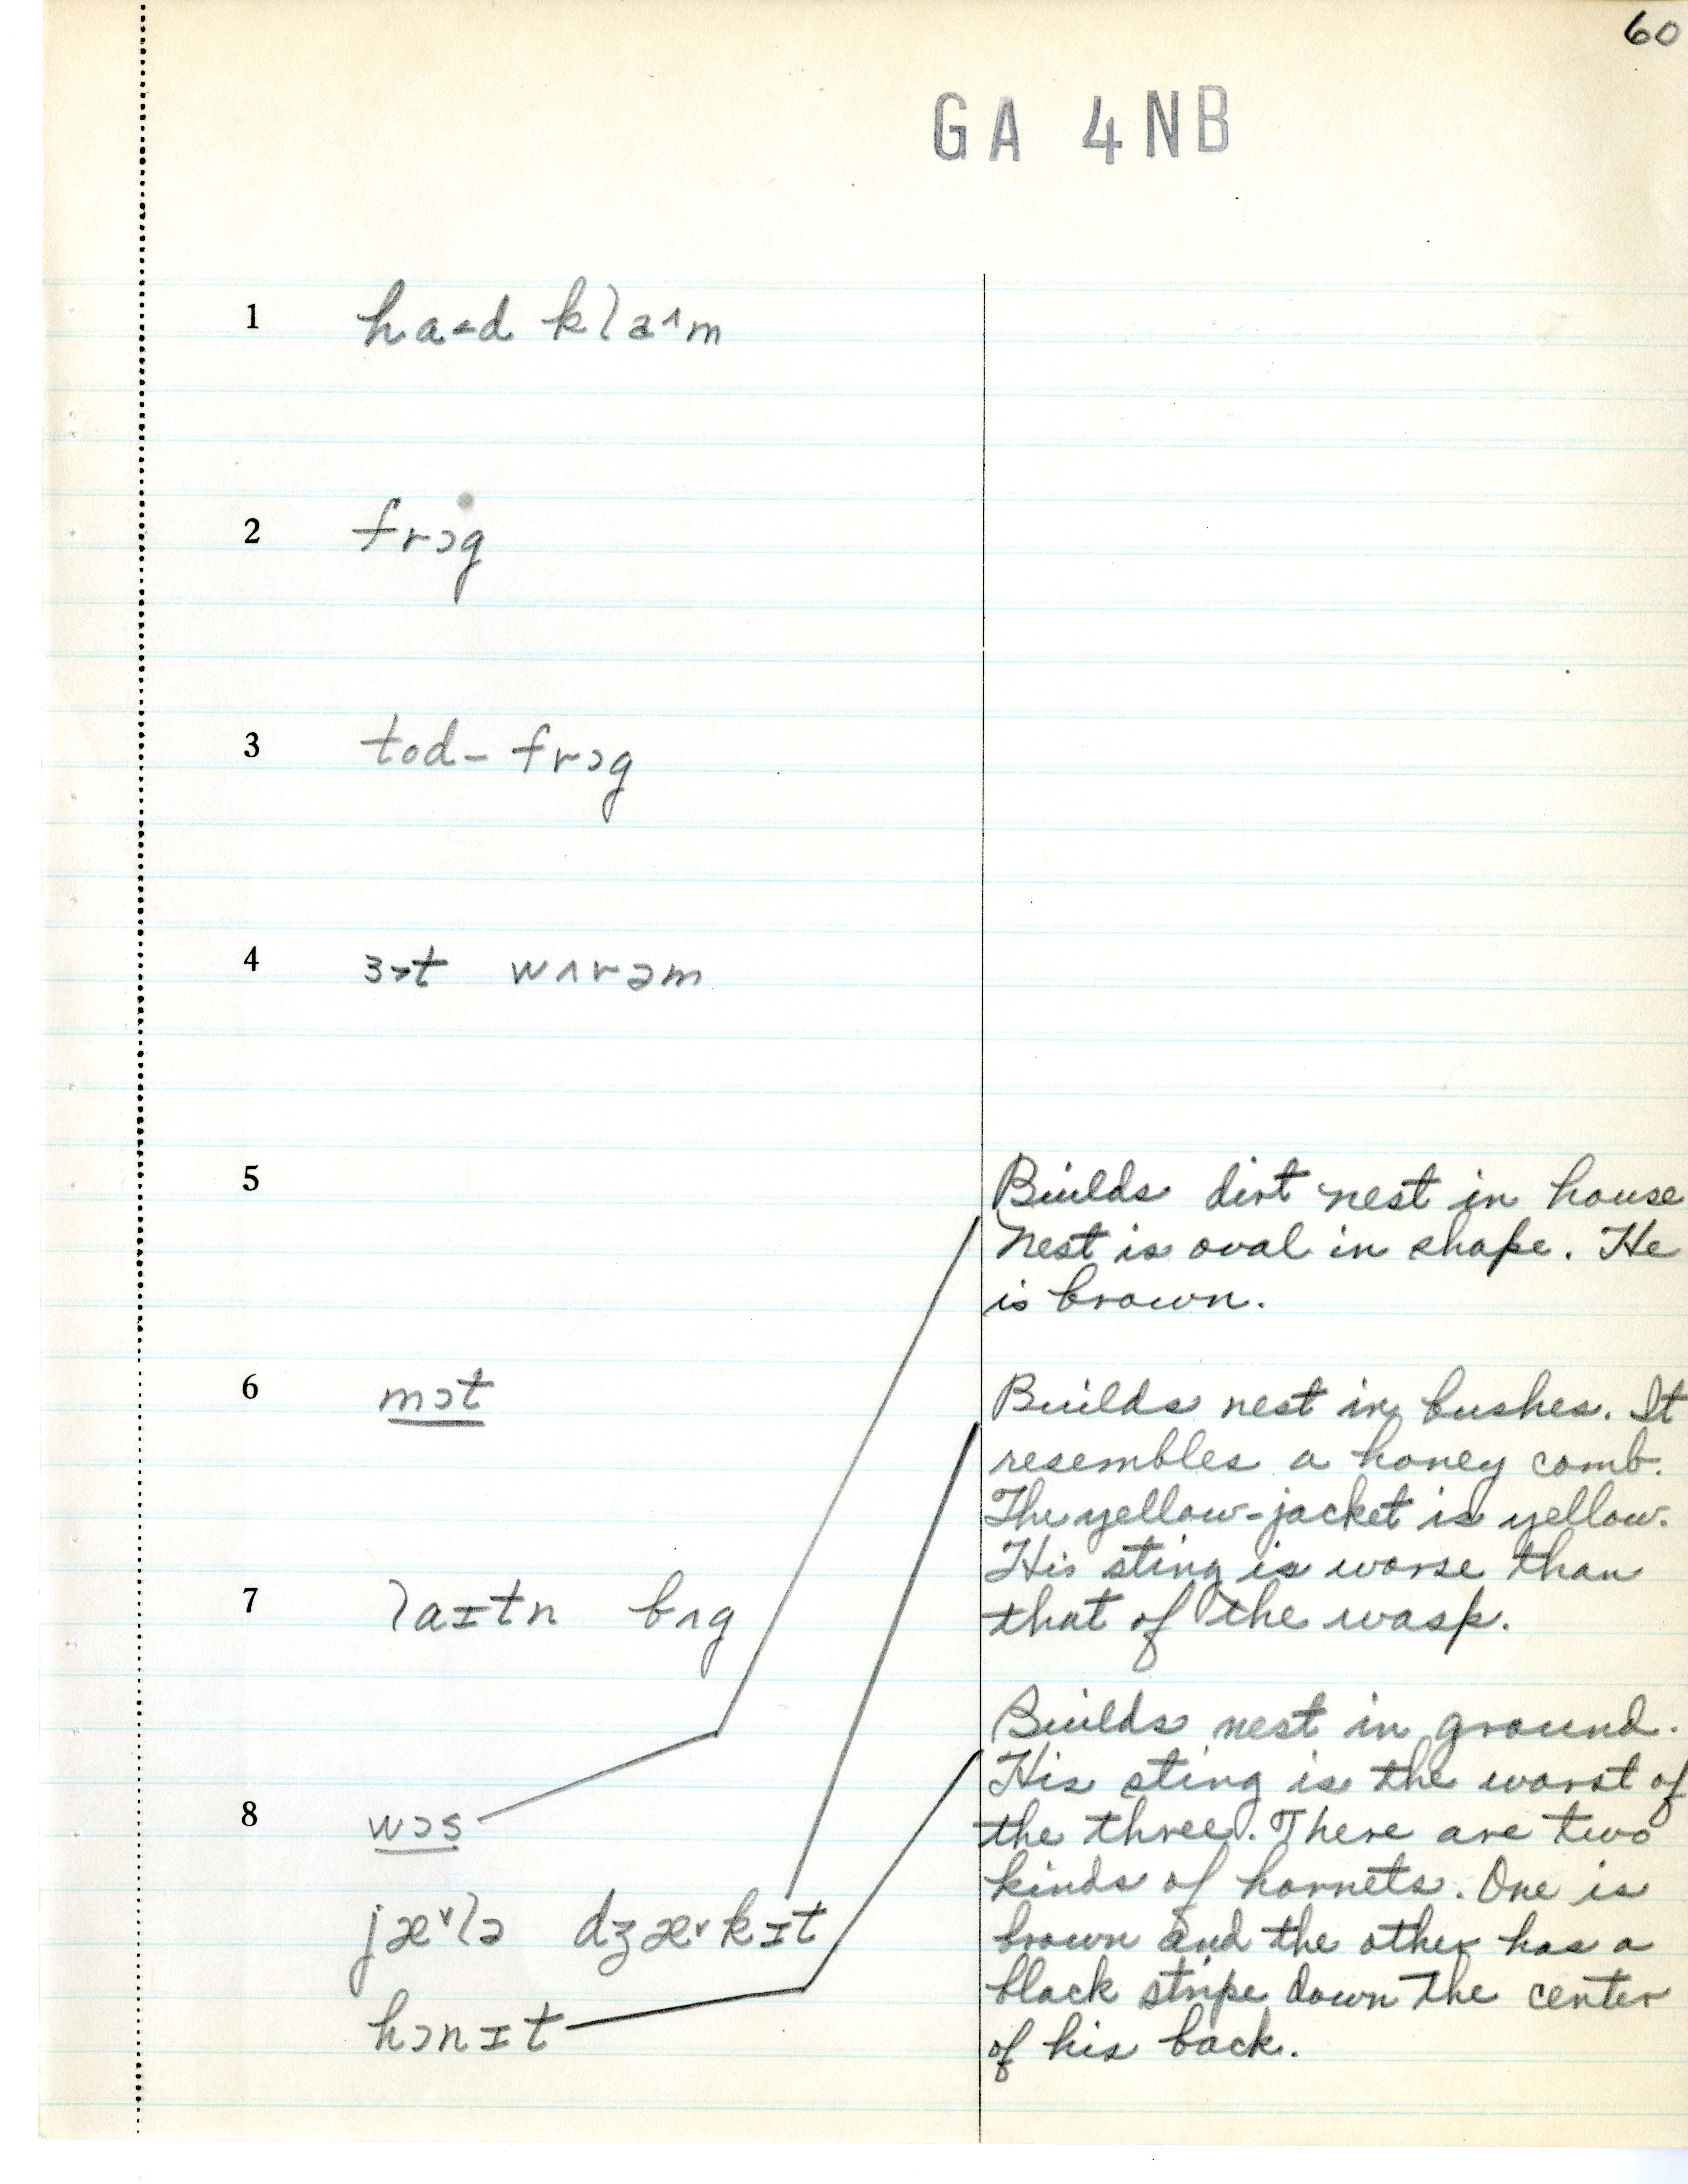 60
GA 4NB
1 ha˂d klaʌm
2 frɔg
3 tod- frɔg
4 ɜ˃t wʌrəm
5
6 mɔt
7 laɪtn bʌg
8 wɔs
jæ˅lə dʒæ˅kɪt
hɔnɪt
Builds dirt nest in house
Nest is oval in shape. He
is brown.
Builds nest in bushes. It
resembles a honey comb.
The yellow-jacket is yellow.
His sting is worse than
that of the wasp.
Builds nest in ground.
His sting is the worst of
the three. There are two
kinds of hornets. One is
brown and the other has a
black stripe down the center
of his back.